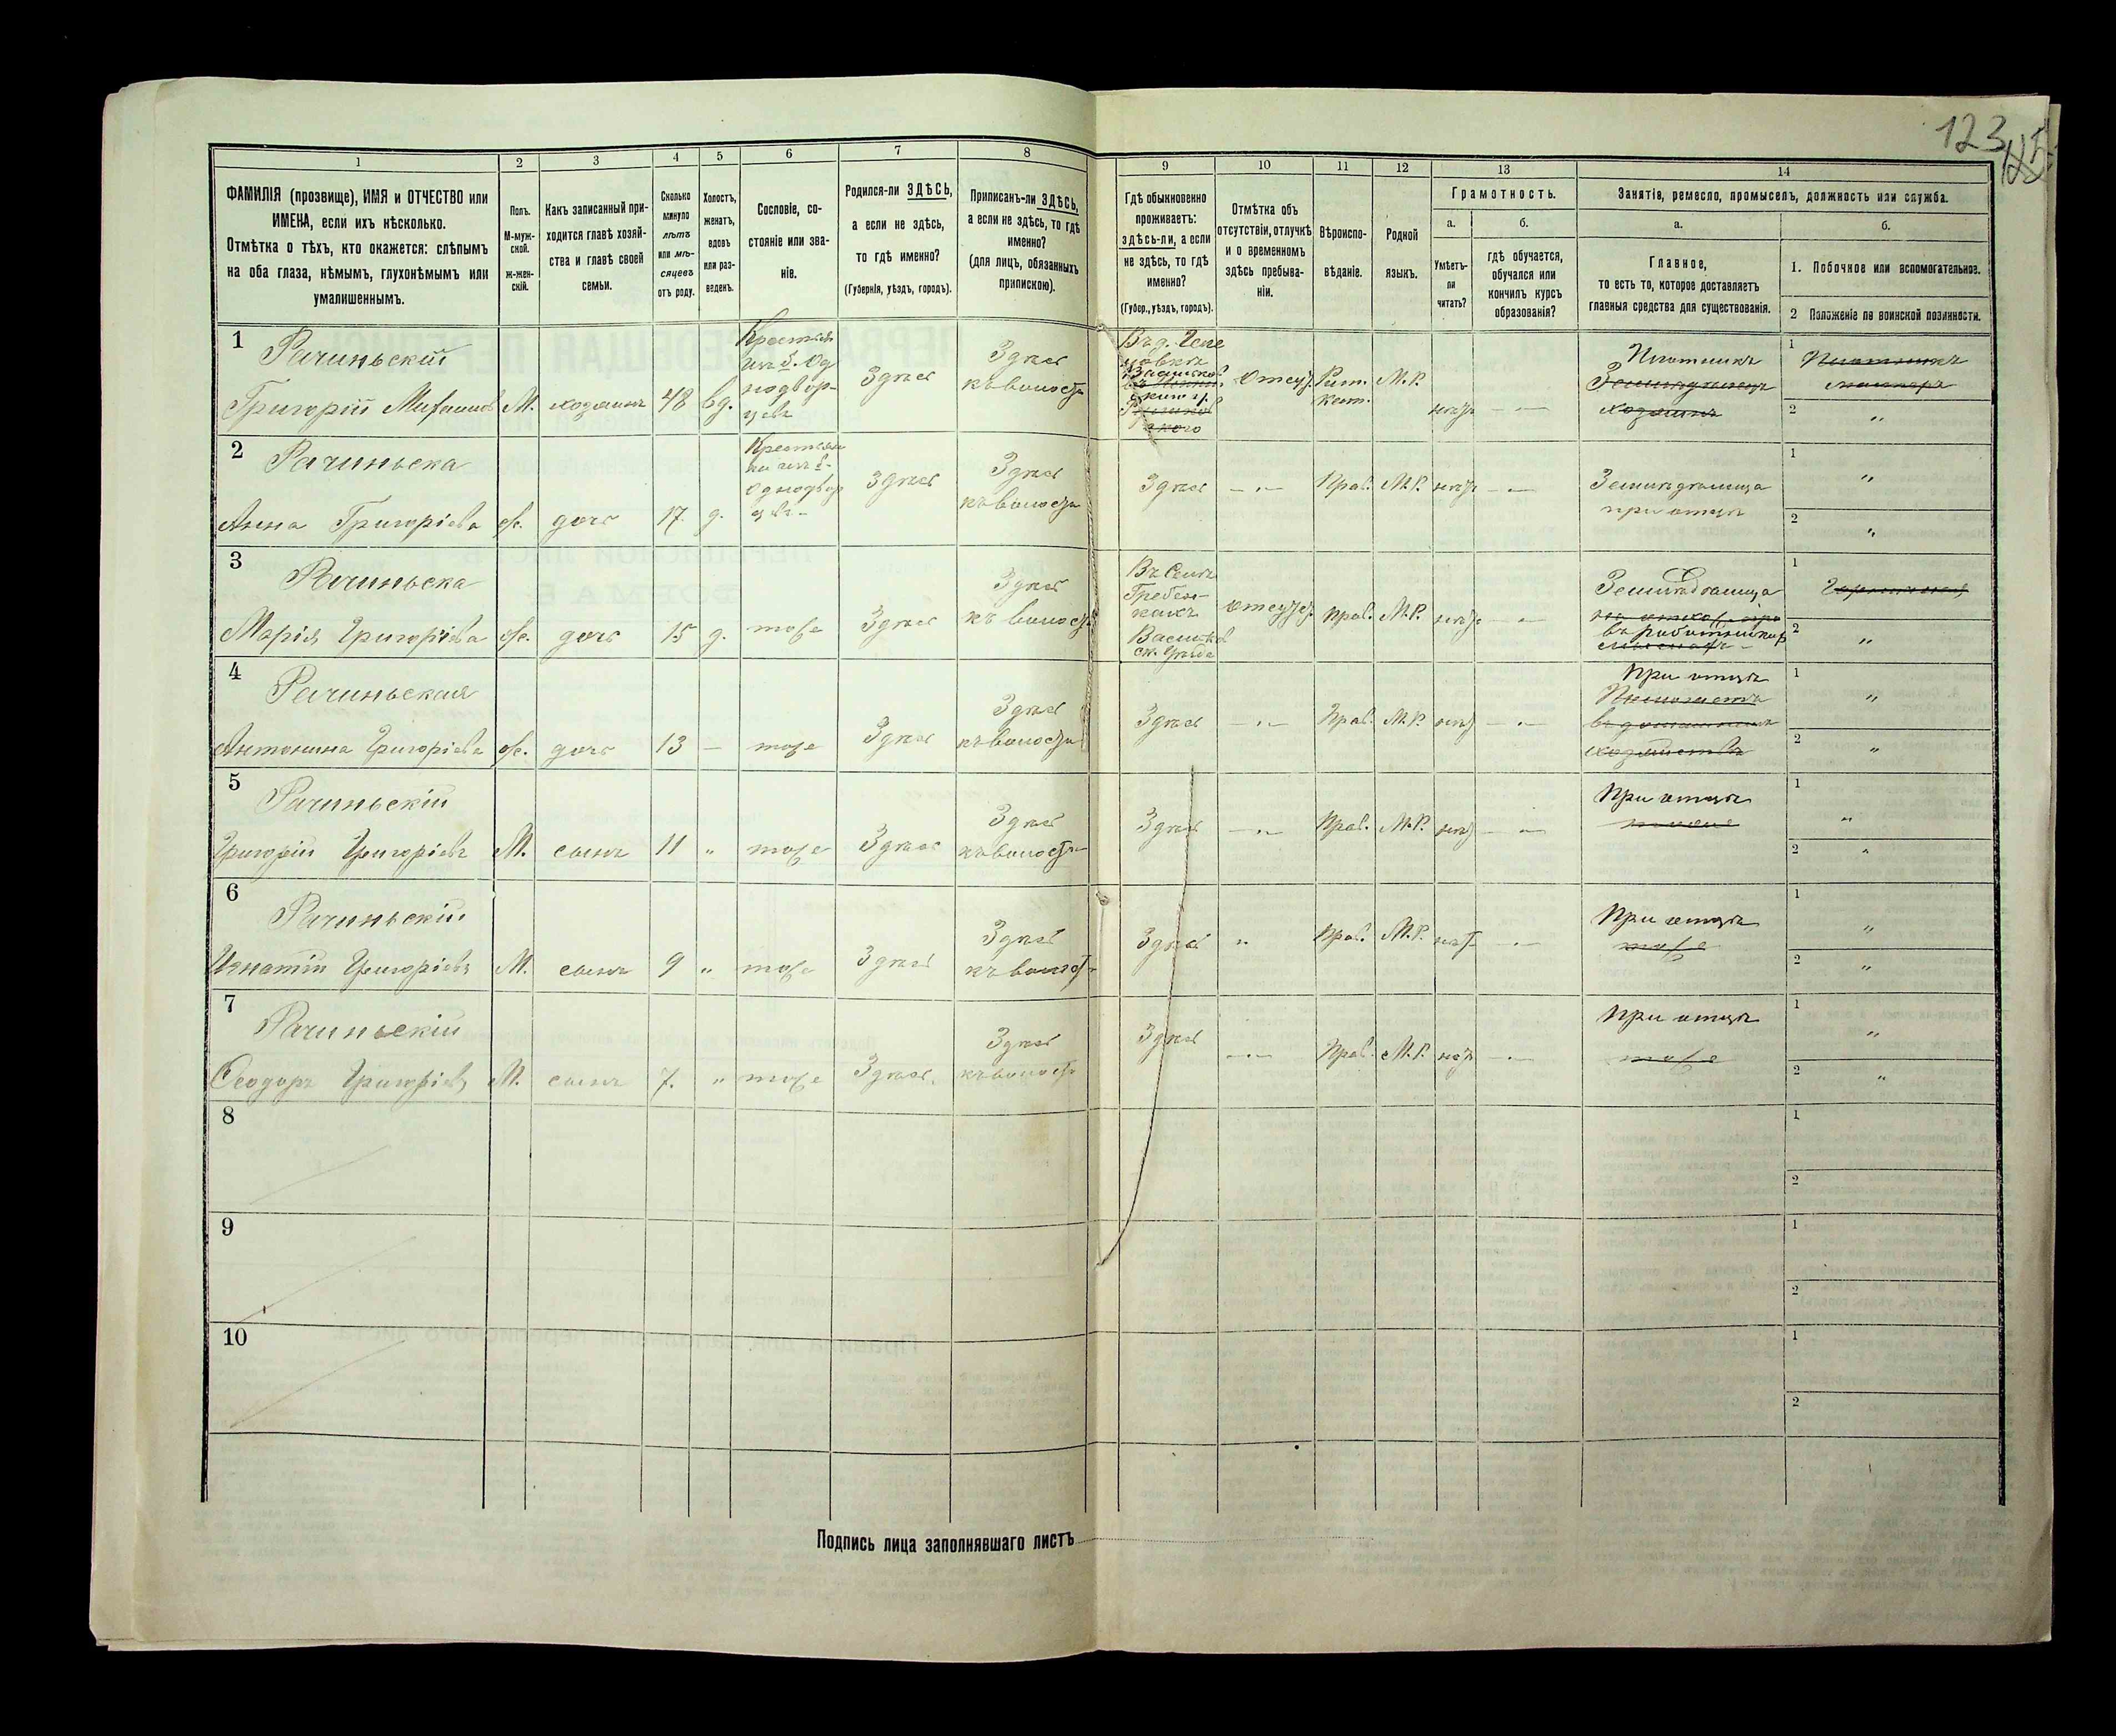 123
1
2
3
4
5
6
7
8
9
10
11
12
13
14
ФАМИЛІЯ (прозвище), ИМЯ и ОТЧЕСТВО или
ИМЕНА, если ихъ нѣсколько.
Отмѣтка о тѣхъ, кто окажется: слѣпымъ
на оба глаза, нѣмымъ, глухонѣмымъ или
умалишеннымъ.
Полъ.
М-муж-
ской.
ж-жен-
скій.
Какъ записанный при-
ходится главѣ хозяй-
ства и главѣ своей
семьи.
Сколько
минуло
лѣтъ
или мѣ-
сяцевъ
отъ роду.
Холостъ,
женатъ,
вдовъ
или раз-
веденъ.
Сословіе, со-
стояніе или зва-
ніе.
Родился-ли ЗДѢСЬ,
а если не здѣсь,
то гдѣ именно?
(Губернія, уѣздъ, городъ).
Приписанъ-ли ЗДѢСЬ,
а если не здѣсь, то гдѣ
именно?
(для лицъ, обязанныхъ
припискою).
Гдѣ обыкновенно
проживаетъ:
здѣсь-ли, а если
не здѣсь, то гдѣ
именно?
(Губер., уѣздъ, городъ).
Отмѣтка объ
отсутствіи, отлучкѣ
и о временномъ
здѣсь пребыва-
ніи.
Вѣроиспо-
вѣданіе.
Родной
языкъ.
Грамотность.
а.
б.
Умѣетъ-
ли
читать?
гдѣ обучается,
обучался или
кончилъ курсъ
образованія?
Занятіе, ремесло, промыселъ, должность или служба.
а.
б.
Главное,
то есть то, которое доставляетъ
главныя средства для существованія.
1. Побочное или вспомогательное.
2 Положеніе по воинской повинности.
1
Рачиньскій
Григорій М. хозяинъ 48 вд.
Крестьян
изъ б. Од
нодвор-
цевъ
Здѣсь
Здѣсь
къ волости
Въ д.
отсут. Рим. М.Р.
кат.
нѣтъ — " —
Плотникъ
Земледѣлецъ
хозяинъ
1
2 "
2
Рачиньска
Анна Григоріева ж. дочь 17. д.
Крестьян
ка изъ б.
Однодвор
цевъ
Здѣсь
Здѣсь
къ волости
Здѣсь — " — Прав. М.Р. нѣтъ — " —
Земледѣлица
при отцѣ
1 "
2 "
3
Рачиньска
Марія Григоріева ж. дочь 15 д. тоже Здѣсь
Здѣсь
къ волости
Въ селѣ
Гребен-
кахъ
Васильков
ск. уѣзда
отсутс. прав. М.Р. нѣтъ — " —
Земледѣлица
въ работницах
1
2 "
4
Рачиньская
Антонина Григоріева ж. дочь 13 — тоже Здѣсь
Здѣсь
къ волости
Здѣсь — " — Прав. М.Р. нѣтъ — " —
При отцѣ
Помогаетъ
въ домашнемъ
хозяйствѣ
1 "
2 "
5
Рачиньскій
Григорій Григоріевъ М. сынъ 11 " тоже Здѣсь
Здѣсь
къ волости
Здѣсь — " — Прав. М.Р. нѣтъ — " —
При отцѣ
1 "
2 "
6
Рачиньскій
Игнатій Григоріевъ М. сынъ 9 " тоже Здѣсь
Здѣсь
къ волости
Здѣсь " прав. М.Р. нѣт — " —
При отцѣ
тоже
1 "
2 "
7
Рачиньскій
Ѳеодоръ Григоріевъ М. сынъ 7. " тоже Здѣсь.
Здѣсь
къ волости
Здѣсь — " — Прав. М.Р. нѣтъ — " —
При отцѣ
тоже
1 "
2 "
8
1
2
9
1
2
10
1
2
Подпись лица заполнявшаго листъ